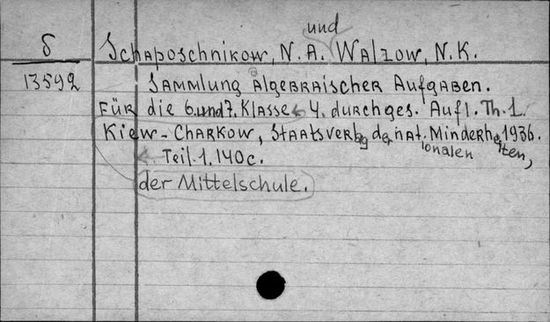 und
δ Schaposchnikow, N. A. Walzow, N. K.
13592 Sammlung algebraischer Aufgaben.
Für die 6. und 7. Klasse 4. durchges. Aufl. Th. 1.
Kiew-Charkow, Staatsverlag der nat. Minderheiten, 1936.
ionalen
Teil. 1. 140 c.
der Mittelschule.